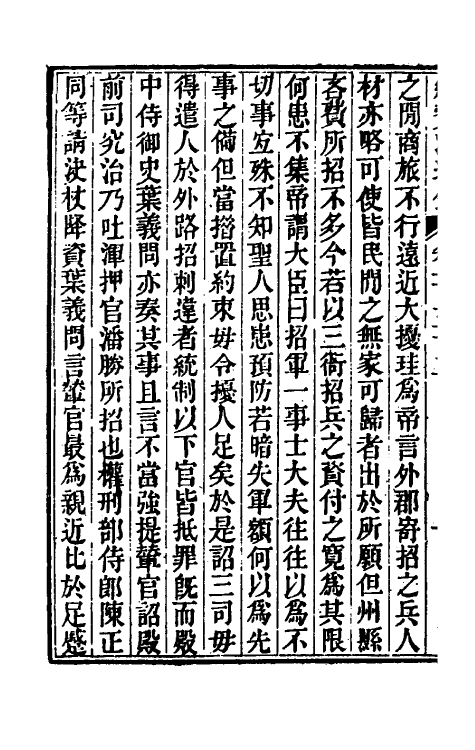 之閒商旅不行遠近大擾珪爲帝言外郡寄招之兵人
材亦略可使皆民閒之無家可歸者出於所願但州縣
吝費所招不多今若以三衙招兵之資付之寬爲其限
何患不集帝謂大臣曰招軍一事士大夫往往以爲不
切事宜殊不知聖人思患預防若暗失軍額何以爲先
事之備但當措置約束毋令擾人足矣於是詔三司毋
得遣人於外路招刺違者統制以下官皆抵罪旣而殿
中侍御史葉義問亦奏其事且言不當強提輦官詔殿
前司究治乃吐渾押官潘勝所招也權刑部侍郎陳正
同等請決杖降資葉義問言輦官最爲親近比於足蹙